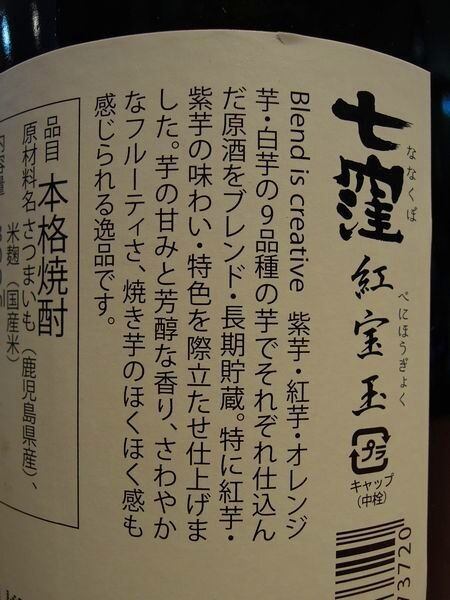 七窪
ななくぼ
紅宝玉
べにほうぎょく
プラ
キャップ
(中栓)
Blend is creative 紫芋・紅芋・オレンジ
芋・白芋の9品種の芋でそれぞれ仕込ん
だ原酒をブレンド・長期貯蔵。特に紅芋・
紫芋の味わい・特色を際立たせ仕上げま
した。芋の甘みと芳醇な香り、さわやか
なフルーティさ、焼き芋のほくほく感も
感じられる逸品です。
品目 本格焼酎
原材料名 さつまいも(鹿児島県産)、
米麹(国産米)
内容量
73720